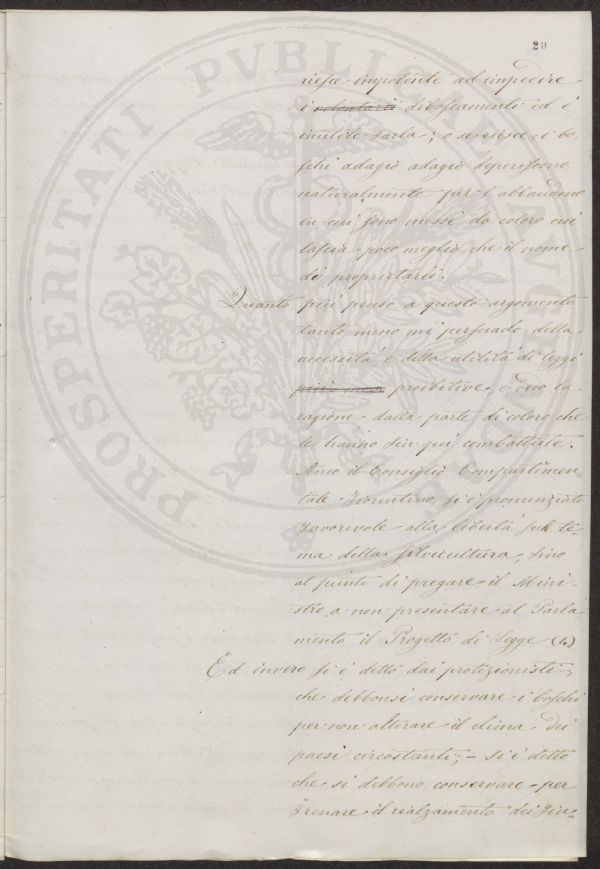 20
riesce impotente ad impedire
i volontarii diboscamenti ed è
inutile farla; o se riesce, i bo-
schi adagio adagio deperiscono
naturalmente per l'abbandono
in cui sono messi da coloro cui
lascia poco meglio che il nome
di proprietarii.
Quanto più penso a questo argomento
tanto meno mi persuado della
necessità e della utilità di leggi
più proibitive, e do la
ragione dalla parte di coloro che
le hanno fin quì combattute.
Anco il Consiglio Compartimen-
tale Fiorentino si è pronunziato
favorevole alla libertà sul te-
ma della silvicultura, fino
al punto di pregare il Mini-
stro a non presentare al Parla-
mento il Progetto di Legge (4)
Ed invero si è detto dai protezionisti,
che debbonsi conservare i boschi
per non alterare il clima dei
paesi circostanti; - si è detto
che si debbono conservare per
frenare il rialzamento dei fiu-
PROSPERITATI PVBLICAE AVGENDAE